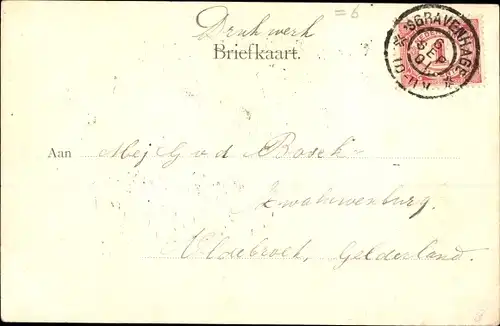 =6
Drukwerk
Briefkaart.
'SGRAVENHAGE
SEP
01
Aan Mej G v d Bosch
Zwaluwenburg.
Oldebroek, Gelderland.